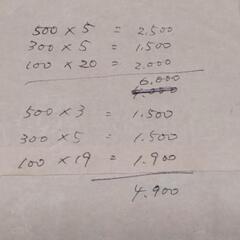 500 × 5 = 2.500
300 × 5 = 1.500
100 × 20 = 2.000
6.000
500 × 3 = 1.500
300 × 5 = 1.500
100 × 19 = 1.900
4.900